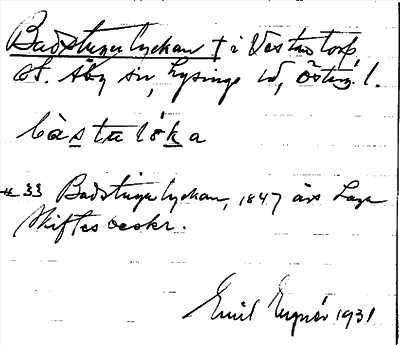 Badstugulyckan † i Västtorp,
St. Åby sn, Lysings hd, Östg. l.
bàstulóka
# 33 Badstugulyckan, 1847 års Laga
skiftesbeskr.
Emil 1931